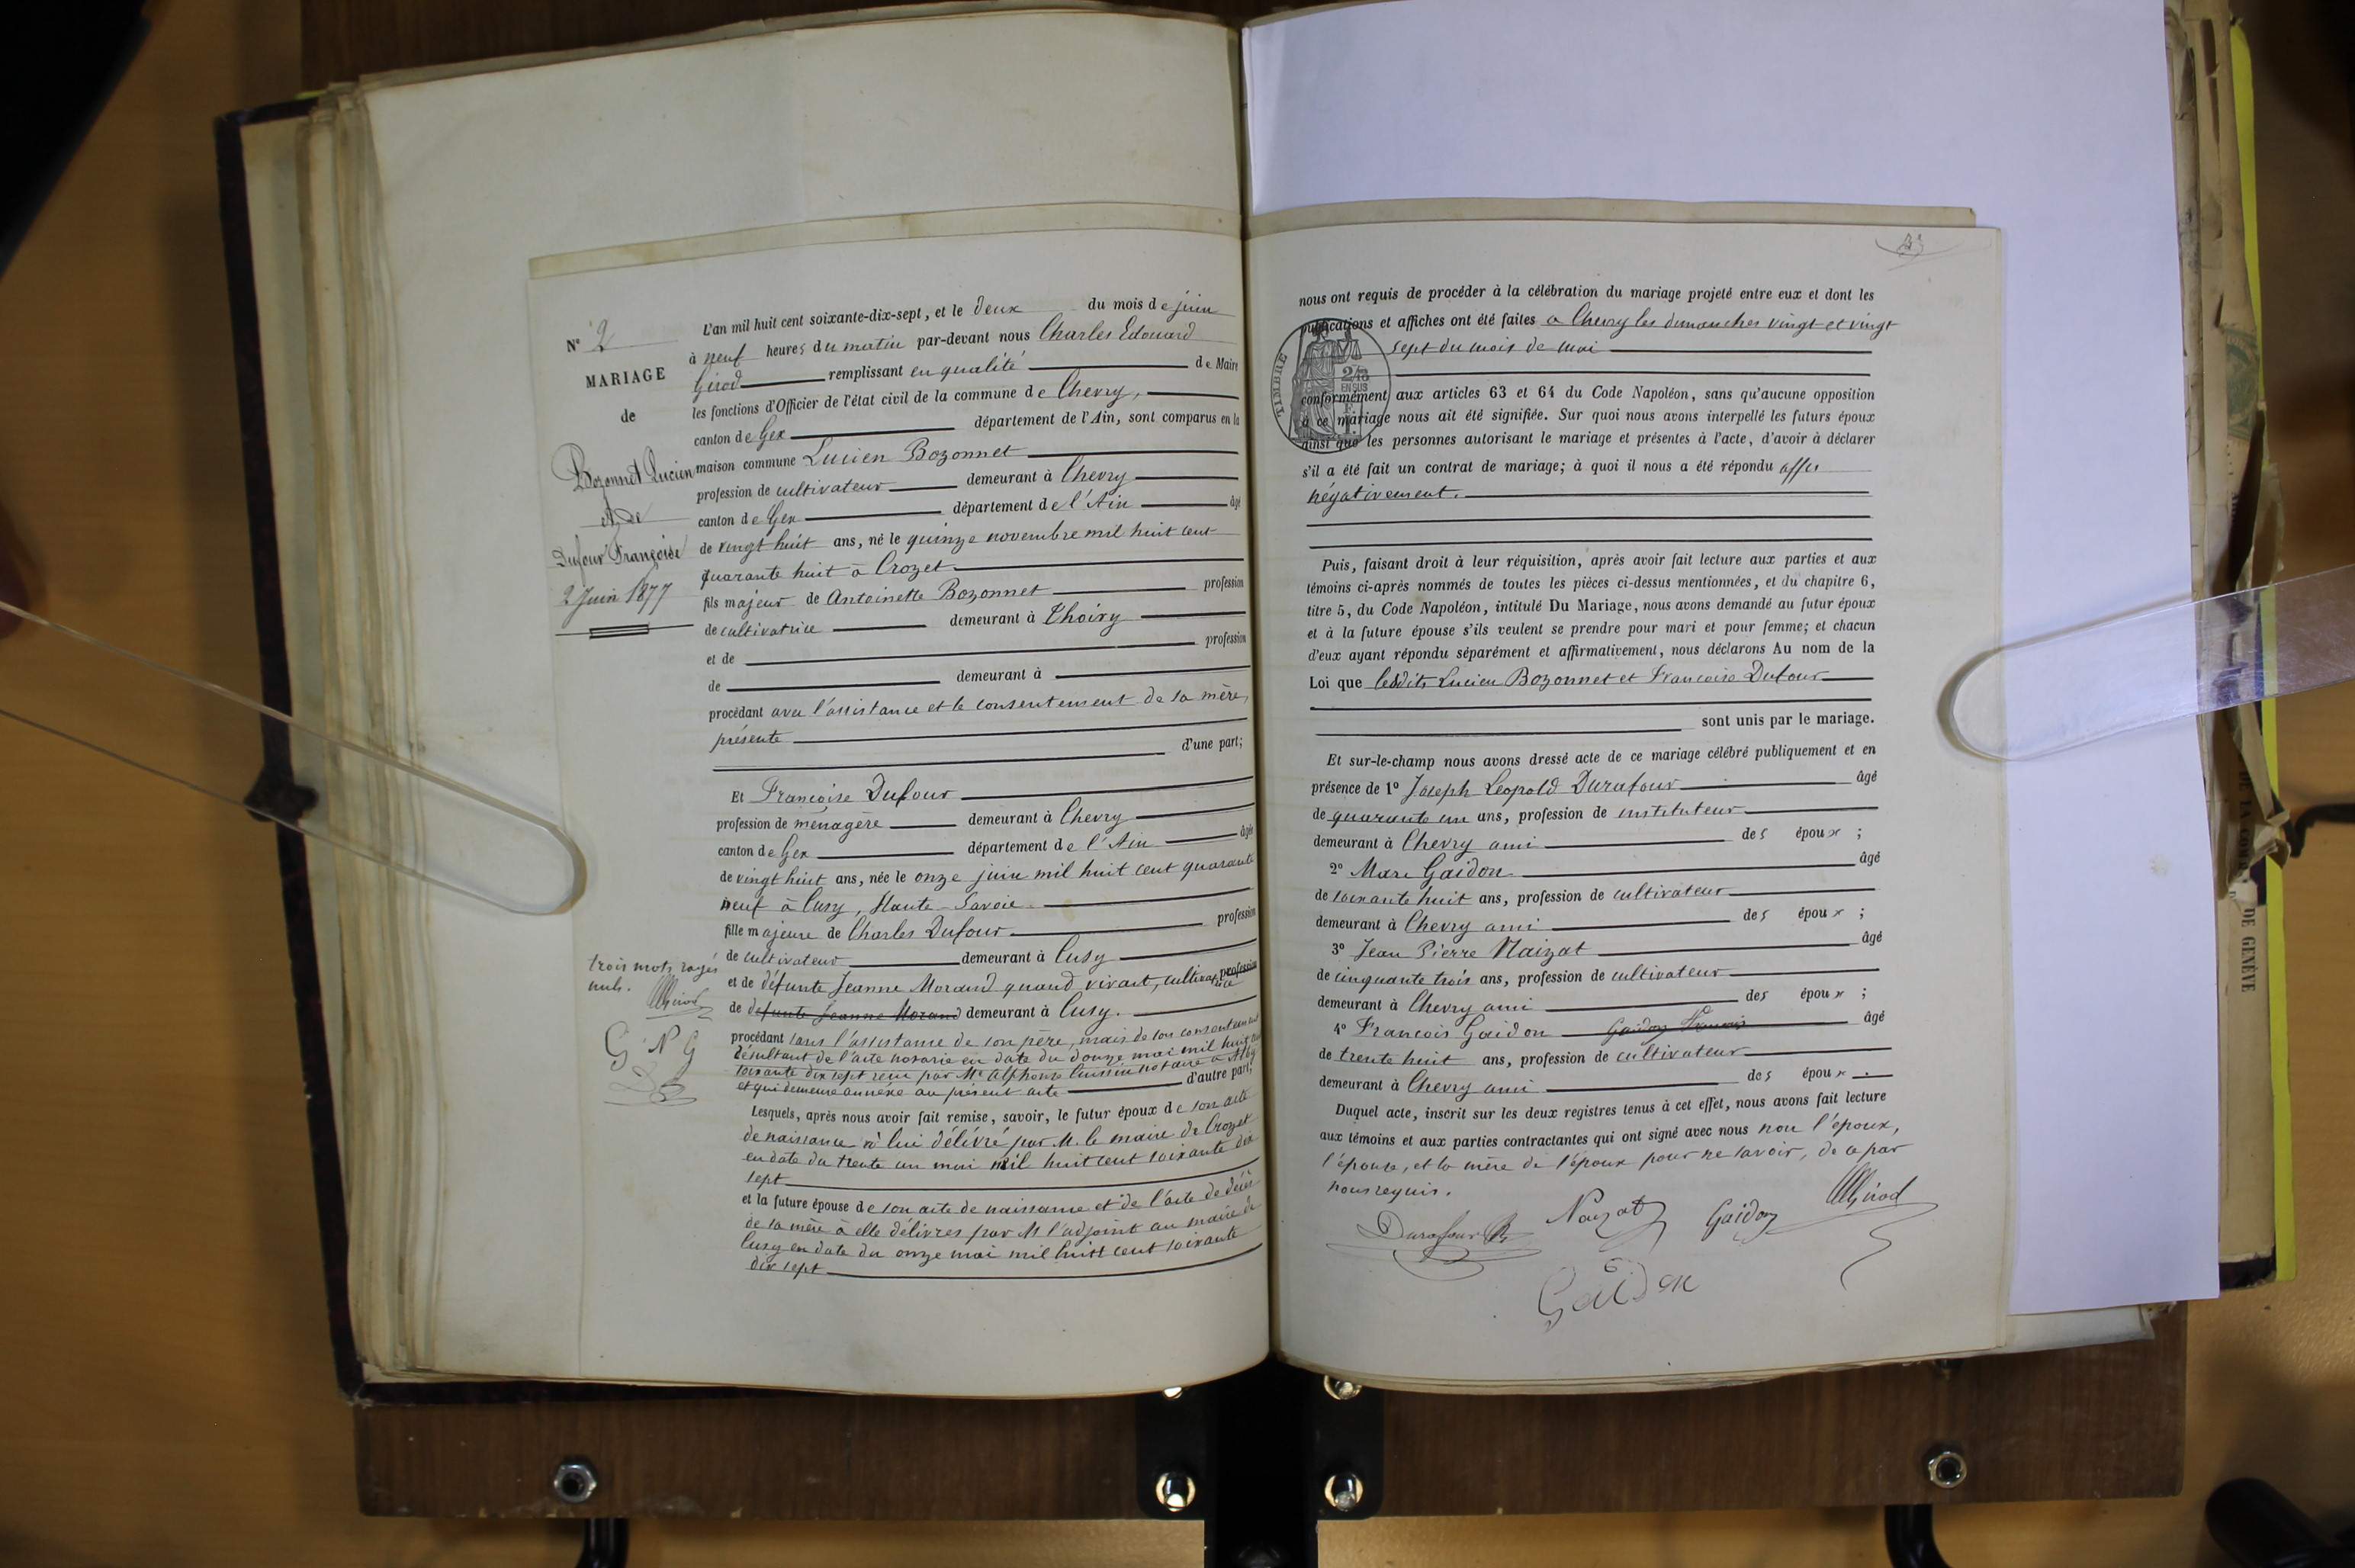 N° 2
MARIAGE
de
Bozonnet Lucien
et de
Dufour Françoise
2 Juin 1877
L'an mil huit cent soixante-dix-sept, et le deux du mois de juin
à neuf heures du matin par-devant nous Charles Edouard
Girod remplissant en qualité de Maire
les fonctions d'Officier de l'état civil de la commune de Chevry,
canton de Gex département de l'Ain, sont comparus en la
maison commune Lucien Bozonnet
profession de cultivateur demeurant à Chevry
canton de Gex département de l'Ain âgé
de vingt huit ans, né le quinze novembre mil huit cent
quarante huit à Crozet
fils majeur de Antoinette Bozonnet profession
de cultivatrice demeurant à Thoiry
et de profession
de demeurant à
procédant avec l'assistance et le consentement de sa mère,
présente
d'une part;
Et Françoise Dufour
profession de ménagère demeurant à Chevry
canton de Gex département de l'Ain âgée
de vingt huit ans, née le onze juin mil huit cent quarante
neuf à Cusy, Haute-Savoie
fille majeure de Charles Dufour profession
de cultivateur demeurant à Cusy
et de défunte Jeanne Morand quand vivait, cultivatrice profession
de defunte Jeanne Morand demeurant à Cusy.
trois mots rayés
nuls.
G N G
procédant sans l'assistance de son père, mais de son consentement
résultant de l'acte notarié en date du douze mai mil huit cent
soixante dix sept reçu par Me Alphonse notaire à Alby
et qui demeure annéxé au présent acte d'autre part;
Lesquels, après nous avoir fait remise, savoir, le futur époux de son acte
de naissance à lui délivré par M. le maire de Crozet
en date du trente un mai mil huit cent soixante dix
sept
et la future épouse de son acte de naissance et de l'acte de décès
de sa mère à elle délivrés par M l'adjoint au maire de
Cusy en date du onze mai mil huit cent soixante
dix sept
23
nous ont requis de procéder à la célébration du mariage projeté entre eux et dont les
publications et affiches ont été faites à Chevry les dimanches vingt et vingt
sept du mois de mai
TIMBRE
2/10
EN SUS
conformément aux articles 63 et 64 du Code Napoléon, sans qu'aucune opposition
à ce mariage nous ait été signifiée. Sur quoi nous avons interpellé les futurs époux
ainsi que les personnes autorisant le mariage et présentes à l'acte, d'avoir à déclarer
s'il a été fait un contrat de mariage; à quoi il nous a été répondu
négativement.
Puis, faisant droit à leur réquisition, après avoir fait lecture aux parties et aux
témoins ci-après nommés de toutes les pièces ci-dessus mentionnées, et du chapitre 6,
titre 5, du Code Napoléon, intitulé Du Mariage, nous avons demandé au futur époux
et à la future épouse s'ils veulent se prendre pour mari et pour femme; et chacun
d'eux ayant répondu séparément et affirmativement, nous déclarons Au nom de la
Loi que lesdits Lucien Bozonnet et Françoise Dufour
sont unis par le mariage.
Et sur-le-champ nous avons dressé acte de ce mariage célébré publiquement et en
présence de 1° Joseph Leopold Durafour âgé
de quarante un ans, profession de instituteur
demeurant à Chevry ami des époux ;
2° Marc Gaidon âgé
de soixante huit ans, profession de cultivateur
demeurant à Chevry ami des époux ;
3° Jean Pierre Naizat âgé
de cinquante trois ans, profession de cultivateur
demeurant à Chevry ami des époux ;
4° François Gaidon Gaidon François âgé
de trente huit ans, profession de cultivateur
demeurant à Chevry ami des époux .
Duquel acte, inscrit sur les deux registres tenus à cet effet, nous avons fait lecture
aux témoins et aux parties contractantes qui ont signé avec nous non l'époux,
l'épouse, et la mère de l'époux pour ne savoir, de ce par
nous requis.
Durafour Nayzat Gaidon Girod
Gaidon
DE GENÈVE